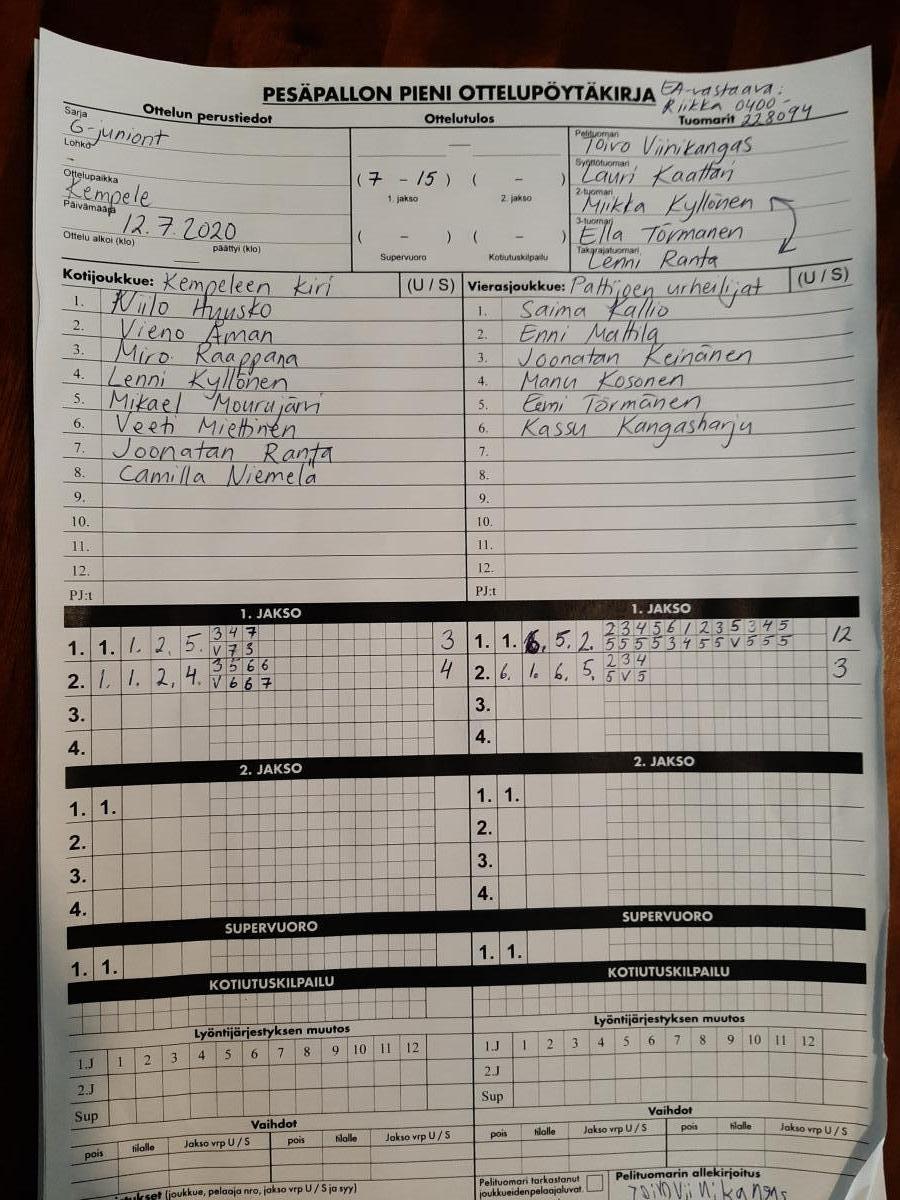 PESÄPALLON PIENI OTTELUPÖYTÄKIRJA
EA-vastaava:
Riikka 0400-
228094
Ottelun perustiedot
Ottelutulos
Tuomarit
Sarja
G-juniorit
Lohko
-
Ottelupaikka
Kempele
Päivämäärä
12.7.2020
Ottelu alkoi (klo) päättyi (klo)
( 7 - 15 ) ( - )
1. jakso 2. jakso
( - ) ( - )
Supervuoro Kotiutuskilpailu
Pelituomari
Toivo Viinikangas
Syöttötuomari
Lauri Kaattari
2-tuomari
Miikka Kyllönen
3-tuomari
Ella Törmänen
Takarajatuomari
Lenni Ranta
Kotijoukkue: Kempeleen Kiri (U / S)
1. Niilo Hyysko
2. Vieno Åman
3. Miro Raappana
4. Lenni Kyllönen
5. Mikael Mourujärvi
6. Veeti Miettinen
7. Joonatan Ranta
8. Camilla Niemelä
9.
10.
11.
12.
PJ:t
Vierasjoukkue: Pattijoen urheilijat (U / S)
1. Saima Kallio
2. Enni Mattila
3. Joonatan Keinänen
4. Manu Kosonen
5. Eemi Törmänen
6. Kassu Kangasharju
7.
8.
9.
10.
11.
12.
PJ:t
1. JAKSO
3 4 7
1. 1. 1. 2. 5. V 7 3 3
3 5 6 6
2. 1. 1. 2. 4. V 6 6 7 4
3.
4.
1. JAKSO
2 3 4 5 6 1 2 3 5 3 4 5
1. 1. 6. 5. 2. 5 5 5 5 3 4 5 5 V 5 5 5 12
2 3 4
2. 6. 1. 6. 5. 5 V 5 3
3.
4.
2. JAKSO
1. 1.
2.
3.
4.
2. JAKSO
1. 1.
2.
3.
4.
SUPERVUORO
1. 1.
SUPERVUORO
1. 1.
KOTIUTUSKILPAILU
KOTIUTUSKILPAILU
Lyöntijärjestyksen muutos
1.J 1 2 3 4 5 6 7 8 9 10 11 12
2.J
Sup
Lyöntijärjestyksen muutos
1.J 1 2 3 4 5 6 7 8 9 10 11 12
2.J
Sup
Vaihdot
pois tilalle Jakso vrp U / S pois tilalle Jakso vrp U / S
Vaihdot
pois tilalle Jakso vrp U / S pois tilalle Jakso vrp U / S
(joukkue, pelaaja nro, jakso vrp U / S ja syy)
Pelituomari tarkastanut
joukkueidenpelaajaluvat.
Pelituomarin allekirjoitus